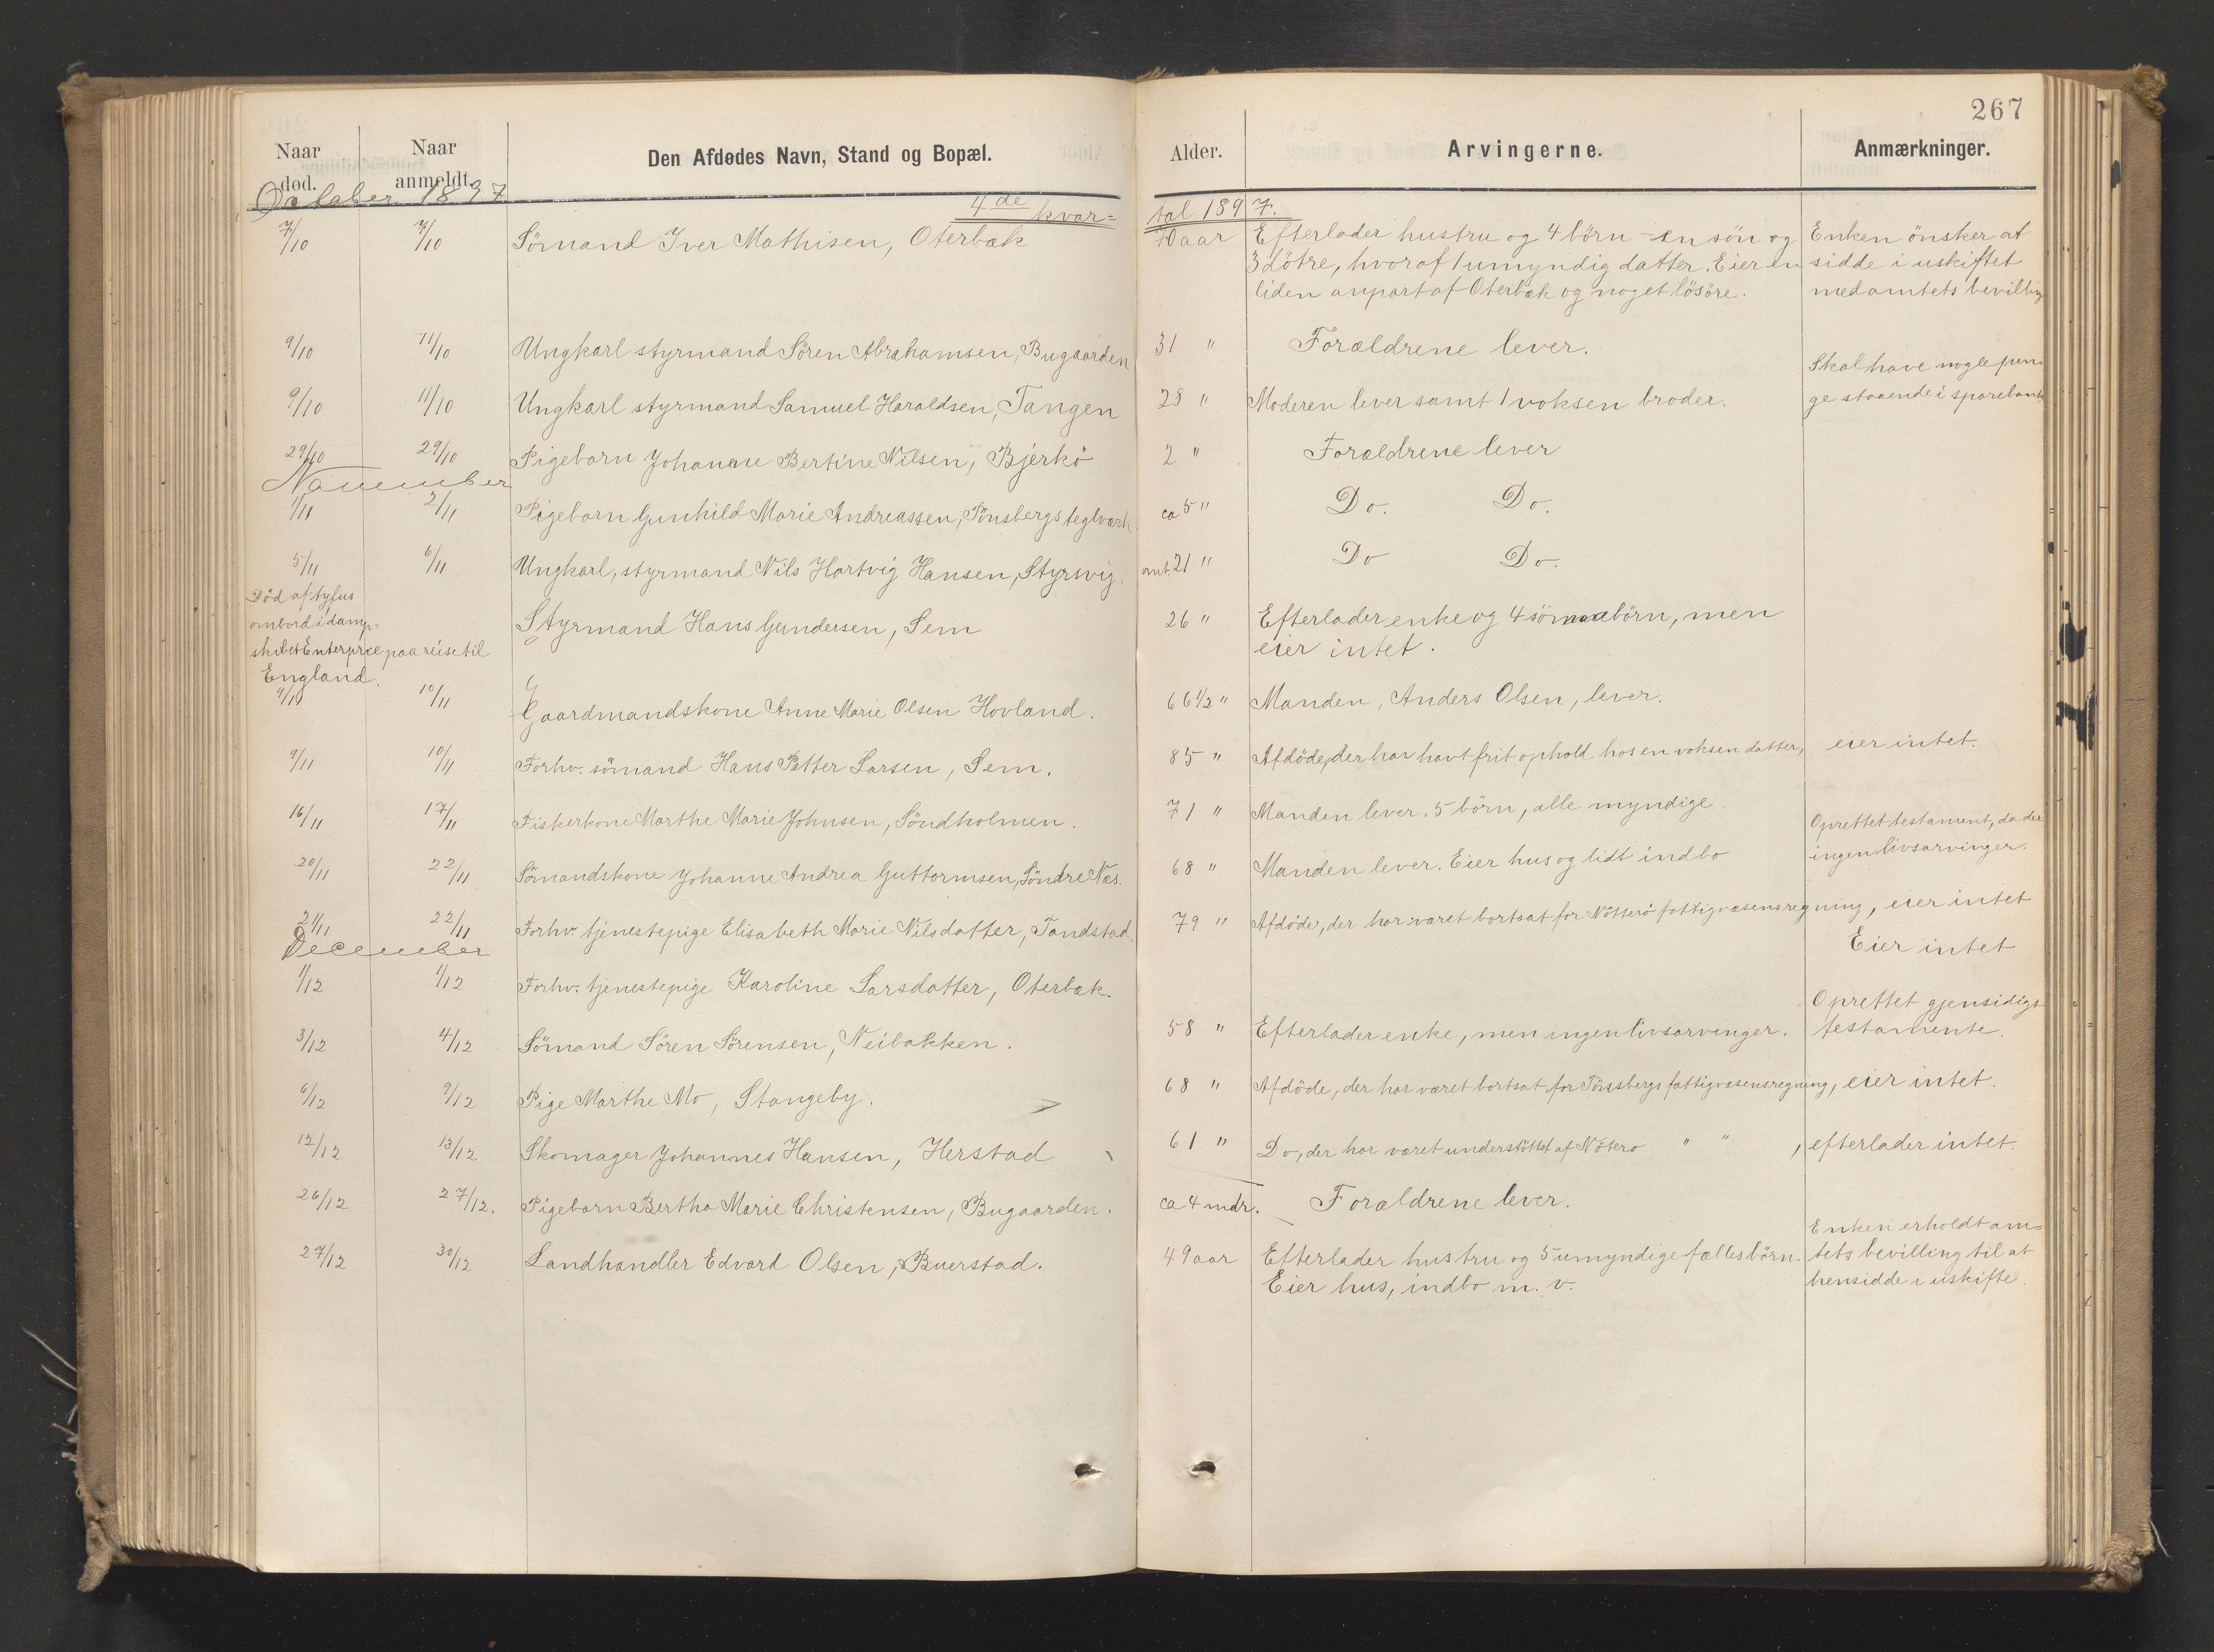 267
Naar død. Naar anmeldt. Den Afdødes Navn, Stand og Bopæl. Alder. Arvingerne. Anmærkninger.
October 1897
4de kvar= tal 1897.
7/10 7/10 Sömand Iver Mathisen, Oterbæk 70 aar Efterlader hustru og 4 börn - en sön og Enken önsker at
3 døtre, hvoraf 1 umyndig datter. Eier en sidde i uskiftet
liden anpart af Oterbæk og noget lösöre. med amtets bevilling
9/10 11/10 Ungkarl styrmand Sören Abrahamsen, Bugaarden 31 " Forældrene lever.
Skal have nogle pen-
9/10 11/10 Ungkarl styrmand Samuel Haraldsen, Tangen 28 " Moderen lever samt 1 voksen broder. ge staaende i sparebank
29/10 29/10 Pigebarn Johanne Bertine Nilsen, Bjerkö 2 " Forældrene lever
November
1/11 2/11 Pigebarn Gunhild Marie Andreassen, Tönsbergs teglværk ca 5 " Do. Do.
5/11 6/11 Ungkarl, styrmand Nils Hartvig Hansen, Styrsvig. omt. 21 " Do Do.
Död af tyfus
ombord i damp-
skibet Enterprice paa reise til
England.
Styrmand Hans Gundersen, Sem 26 " Efterlader enke og 4 sönnebörn, men
eier intet.
9/11 10/11 Gaardmandskone Anne Marie Olsen Hovland. 66 1/2 " Manden, Anders Olsen, lever.
9/11 10/11 Forhv. sömand Hans Petter Larsen, Sem. 85 " Afdöde, der har havt frit ophold hos en voksen datter, eier intet.
16/11 17/11 Fiskerkone Marthe Marie Johnsen, Söndholmen. 71 " Manden lever. 5 börn, alle myndige.
Oprettet testament, da der
20/11 22/11 Sömandskone Johanne Andrea Guttormsen, Söndre Næs. 68 " Manden lever. Eier hus og lidt indbo ingen livsarvinger.
21/11 22/11 Forhv. tjenestepige Elisabeth Marie Nilsdatter, Tandstad. 79 " Afdöde, der har været bortsat for Nötterö fattigvæsens regning, eier intet
December
Eier intet
1/12 1/12 Forhv. tjenestepige Karoline Larsdatter, Oterbæk.
Oprettet gjensidigt
3/12 4/12 Sömand Sören Sörensen, Neibakken. 58 " Efterlader enke, men ingen livsarvinger. testamente.
6/12 9/12 Pige Marthe Mo, Stangeby. 68 " Afdöde, der har været bortsat for Tönsbergs fattigvæsens regning, eier intet.
12/12 13/12 Skomager Johannes Hansen, Herstad 61 " Do, der har været understöttet af Nötero " " , efterlader intet.
26/12 27/12. Pigebarn Bertha Marie Christensen, Bugaarden. ca 4 mdr. Forældrene lever.
Enken erholdt am=
27/12 30/12 Landhandler Edvard Olsen, Buerstad. 49 aar Efterlader hustru og 5 umyndige fællesbörn. tets bevilling til at
Eier hus, indbo m. v. hensidde i uskifte.